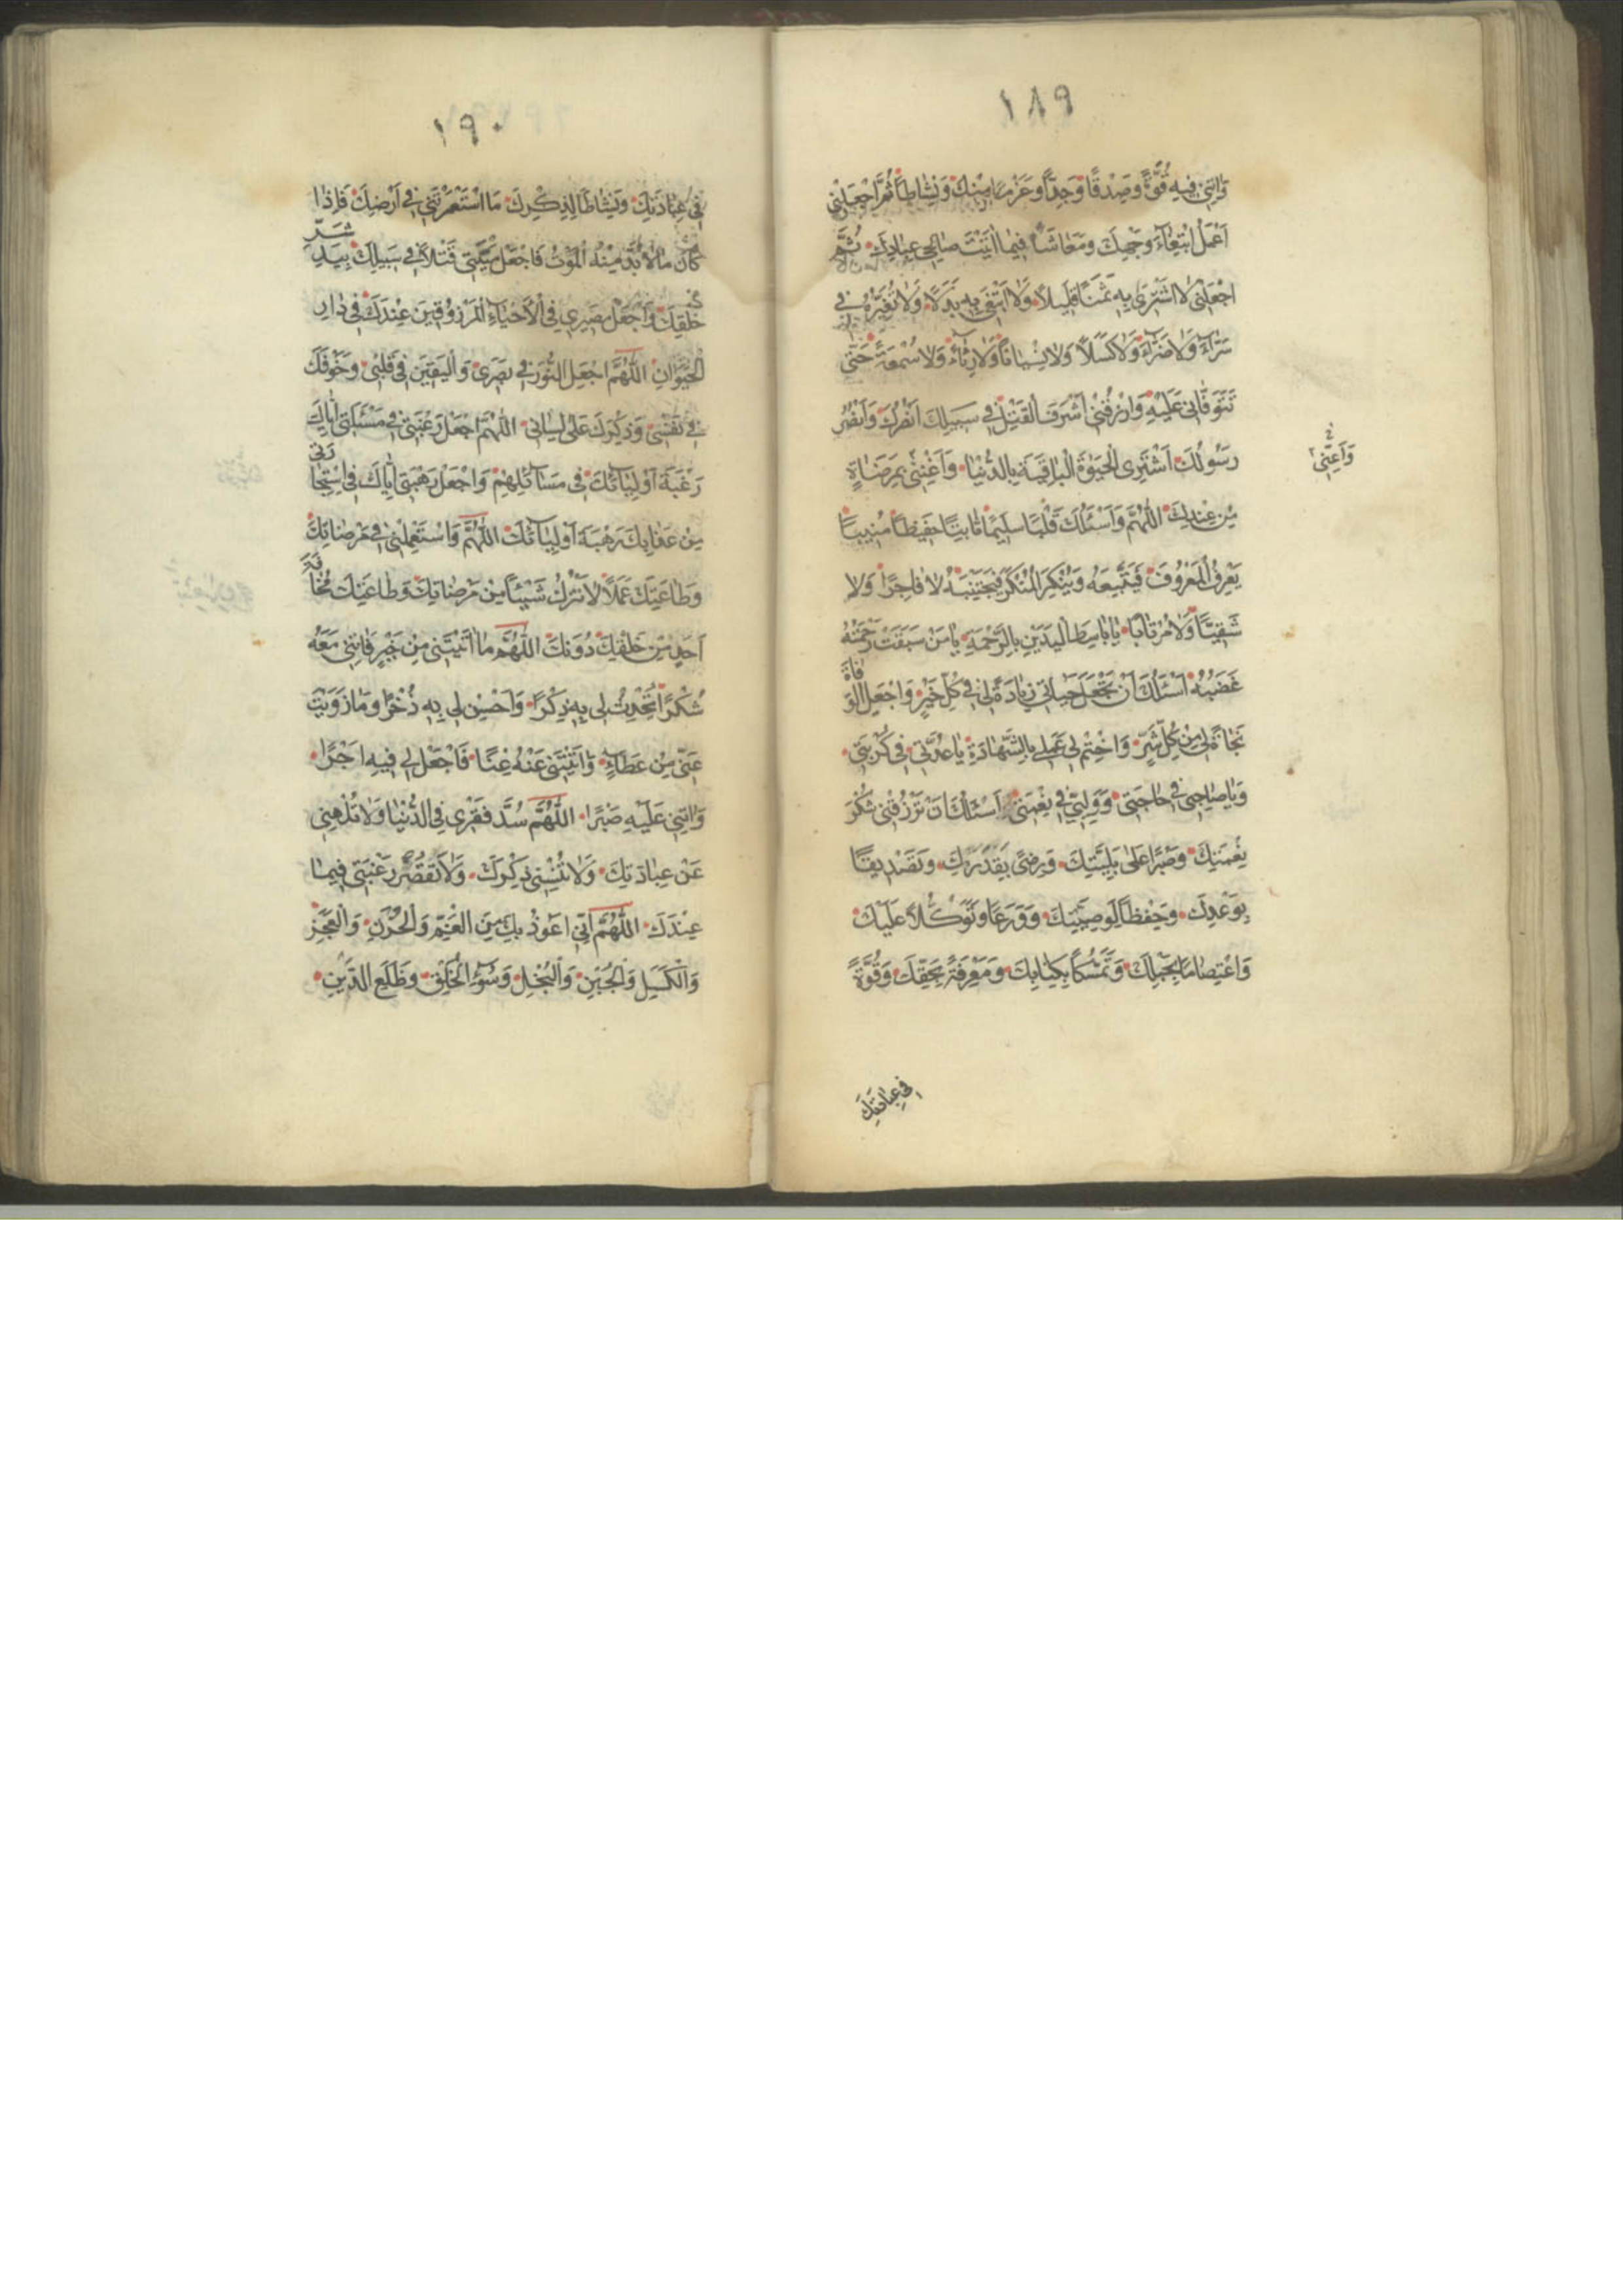 ١٨٩
وَاٰتِنى فيهِ قُوَّةً وَصِدْقًا وَجِدًّا وَعَزْمًا مِنْكَ وَنَشاطًا ثُمَّ اجْعَلْنى
اَعْمَلُ ابْتِغاءَ وَجْهِكَ وَمَعاشًا فيما اٰتَيْتَ صالِحى عِبادِكَ ثُمَّ
اجْعَلْنى لا اَشْتَرى بِهِ ثَمَنًا قَليلًا وَلا اَبْتَغى بِهِ بَدَلًا وَلا تُغَيِّرْهُ فى
سَرّاءَ وَلا ضَرّاءَ وَلا كَسَلًا وَلا نِسْيانًا وَلا رِئاءً وَلا سُمْعَةً حَتّى
تَتَوَفّانى عَلَيْهِ وَارْزُقْنى اَشْرَفَ الْقَتْلِ فى سَبيلِكَ اَنْصُرُكَ وَاَنْصُرُ
رَسُولَكَ اَشْتَرِى الْحَيٰوةَ الْباقِيَةَ بِالدُّنْيا وَاَغْنِنى بِمَرْضاةٍ
وَاَعِنّى
مِنْ عِنْدِكَ اَللّٰهُمَّ وَاَسْئَلُكَ قَلْبًا سَليمًا ثابِتًا حَفيظًا مُنيبًا
يَعْرِفُ الْمَعْرُوفَ فَيَتَّبِعُهُ وَيُنْكِرُ الْمُنْكَرَ فَيَجْتَنِبُهُ لا فاجِرًا وَلا
شَقِيًّا وَلا مُرْتابًا يا باسِطَ الْيَدَيْنِ بِالرَّحْمَةِ يا مَنْ سَبَقَتْ رَحْمَتُهُ
غَضَبَهُ اَسْئَلُكَ اَنْ تَجْعَلَ حَياتى زِيادَةً لى فى كُلِّ خَيْرٍ وَاجْعَلِ الْوَفاةَ
نَجاةً لى مِنْ كُلِّ شَرٍّ وَاخْتِمْ لى عَمَلى بِالشَّهادَةِ يا عُدَّتى فى كُرْبَتى
وَيا صاحِبى فى حاجَتى وَوَلِيّى فى نِعْمَتى اَسْئَلُكَ اَنْ تَرْزُقَنى شُكْرَ
نِعْمَتِكَ وَصَبْرًا عَلى بَلِيَّتِكَ وَرِضًى بِقَدَرِكَ وَتَصْديقًا
بِوَعْدِكَ وَحِفْظًا لِوَصِيَّتِكَ وَوَرَعًا وَتَوَكُّلًا عَلَيْكَ
وَاعْتِصامًا بِحَبْلِكَ وَتَمَسُّكًا بِكِتابِكَ وَمَعْرِفَةً بِحَقِّكَ وَقُوَّةً
فى عِبادَتِكَ
١٩٠
فى عِبادَتِكَ وَنَشاطًا لِذِكْرِكَ مَا اسْتَعْمَرْتَنى فى اَرْضِكَ فَاِذا
كانَ ما لا بُدَّ مِنْهُ الْمَوْتُ فَاجْعَلْ مَيْتَتى قَتْلًا فى سَبيلِكَ بِيَدِ شَرِّ
خَلْقِكَ وَاجْعَلْ مَصيرى فِى الْاَحْياءِ الْمَرْزُوقينَ عِنْدَكَ فى دارِ
الْحَيَوانِ اَللّٰهُمَّ اجْعَلِ النُّورَ فى بَصَرى وَالْيَقينَ فى قَلْبى وَخَوْفَكَ
فى نَفْسى وَذِكْرَكَ عَلى لِسانى اَللّٰهُمَّ اجْعَلْ رَغْبَتى فى مَسْئَلَتى اِيّاكَ
رَغْبَةَ اَوْلِيائِكَ فى مَسائِلِهِمْ وَاجْعَلْ رَهْبَتى اِيّاكَ فِى اسْتِجارَتى
مِنْ عَذابِكَ رَهْبَةَ اَوْلِيائِكَ اَللّٰهُمَّ وَاسْتَعْمِلْنى فى مَرْضاتِكَ
وَطاعَتِكَ عَمَلًا لا اَتْرُكُ شَيْئًا مِنْ مَرْضاتِكَ وَطاعَتِكَ مَخافَةَ
اَحَدٍ مِنْ خَلْقِكَ دُونَكَ اَللّٰهُمَّ ما اٰتَيْتَنى مِنْ خَيْرٍ فَاٰتِنى مَعَهُ
شُكْرًا تُحْدِثُ لى بِهِ ذِكْرًا وَاَحْسِنْ لى بِهِ ذُخْرًا وَما زَوَيْتَ
عَنّى مِنْ عَطاءٍ وَاٰتَيْتَنى عَنْهُ غِنًا فَاجْعَلْ لى فيهِ اَجْرًا
وَاٰتِنى عَلَيْهِ صَبْرًا اَللّٰهُمَّ سُدَّ فَقْرى فِى الدُّنْيا وَلا تُلْهِنى
عَنْ عِبادَتِكَ وَلا تُنْسِنى ذِكْرَكَ وَلا تُقَصِّرْ رَغْبَتى فيما
عِنْدَكَ اَللّٰهُمَّ اِنّى اَعُوذُ بِكَ مِنَ الْغَمِّ وَالْحُزْنِ وَالْعَجْزِ
وَالْكَسَلِ وَالْجُبْنِ وَالْبُخْلِ وَسُوءِ الْخُلْقِ وَظَلَعِ الدَّيْنِ